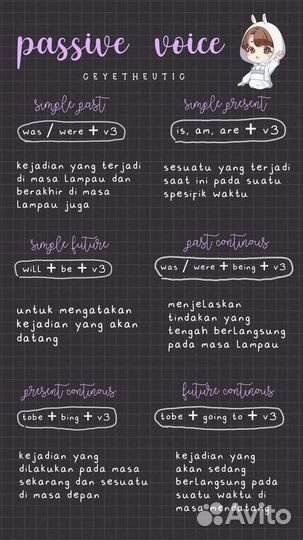 passive voice
GEYETHEUTIG
simple past
was / were + v3
kejadian yang terjadi
di masa lampau dan
berakhir di masa
lampau juga
simple present
is, am, are + v3
sesuatu yang terjadi
saat ini pada suatu
spesifik waktu
simple future
will + be + v3
untuk mengatakan
kejadian yang akan
datang
past continous
was / were + being + v3
menjelaskan
tindakan yang
tengah berlangsung
pada masa lampau
present continous
tobe + bing + v3
kejadian yang
dilakukan pada masa
sekarang dan sesuatu
di masa depan
future continous
tobe + going to + v3
kejadian yang
akan sedang
berlangsung pada
suatu waktu di
masa mendatang
Avito